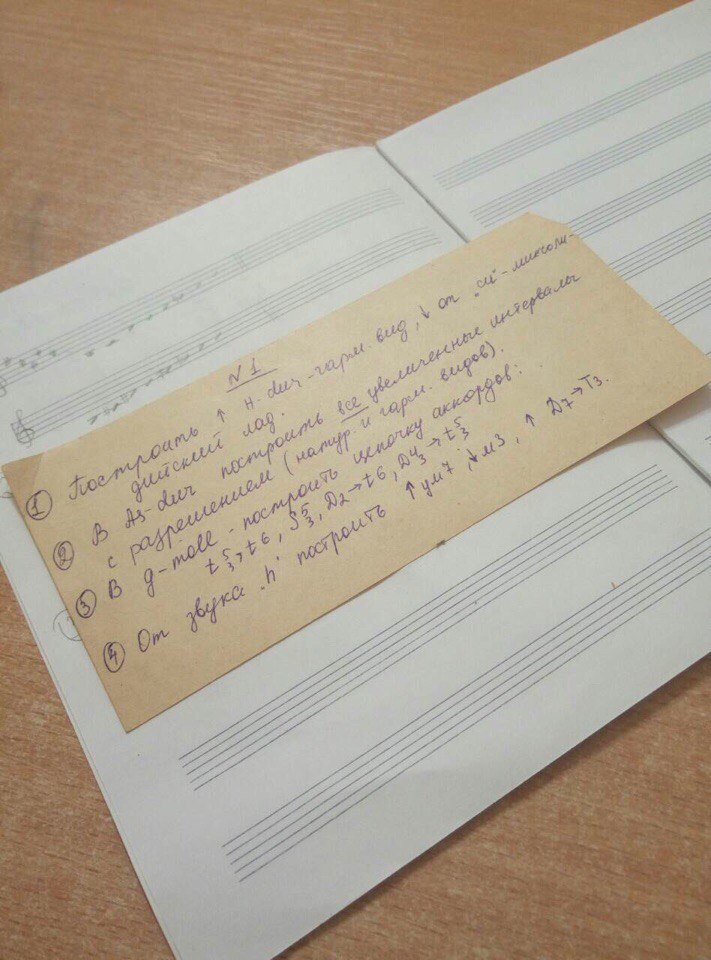 N 1
① Построить ↑ H-dur-гарм. вид, ↓ от "си"-миксоли-
дийский лад.
② В As-dur построить все увеличенные интервалы
с разрешением (натур. и гарм. видов).
③ В g-moll - построить цепочку аккордов:
t 5/3 → t6, S 5/3, D2 → t6, D 4/3 → t 5/3
④ От звука "h" построить ↑ ум7, ↓ м3, ↑ D7 → T3.